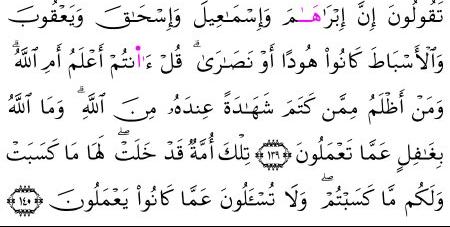 تَقُولُونَ إِنَّ إِبْرَٰهَـٰمَ وَإِسْمَـٰعِيلَ وَإِسْحَـٰقَ وَيَعْقُوبَ
وَٱلْأَسْبَاطَ كَانُوا۟ هُودًا أَوْ نَصَـٰرَىٰ ۗ قُلْ ءَا۬نتُمْ أَعْلَمُ أَمِ ٱللَّهُ ۗ
وَمَنْ أَظْلَمُ مِمَّن كَتَمَ شَهَـٰدَةً عِندَهُۥ مِنَ ٱللَّهِ ۗ وَمَا ٱللَّهُ
بِغَـٰفِلٍ عَمَّا تَعْمَلُونَ ١٣٩ تِلْكَ أُمَّةٌ قَدْ خَلَتْ ۖ لَهَا مَا كَسَبَتْ
وَلَكُم مَّا كَسَبْتُمْ ۖ وَلَا تُسْـَٔلُونَ عَمَّا كَانُوا۟ يَعْمَلُونَ ١٤٠